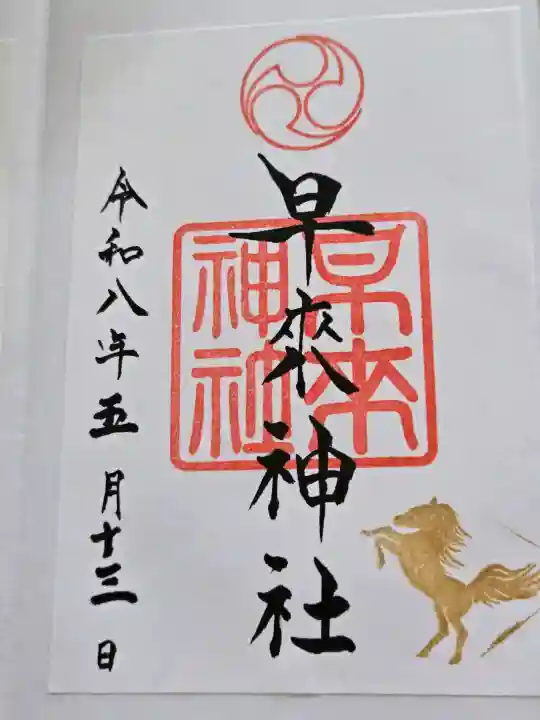 早來神社
早来神社
令和八年五月十三日